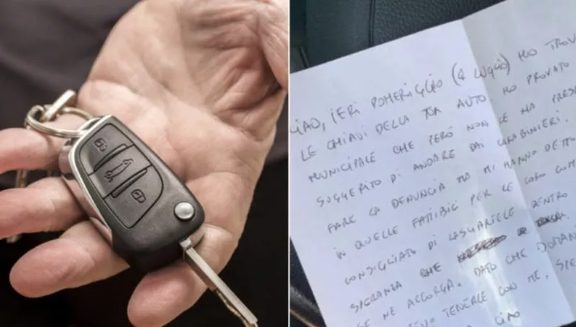 CIAO, IERI POMERIGGIO (4 LUGLIO) HO TROVA
LE CHIAVI DELLA TUA AUTO HO PROVATO
MUNICIPALE CHE PERÒ NON LE HA
SUGGERITO DI ANDARE DAI CARABINIERI.
FARE LA DENUNCIA MA MI HANNO DETTO
IN QUELLE FATTIBILI PER LE LORO COM
CONSIGLIATO DI LASCIARTELE DENTRO
SPERANZA CHE
SE NE ACCORGA. DATO CHE
TENERLE CON ME, SPE
CIAO